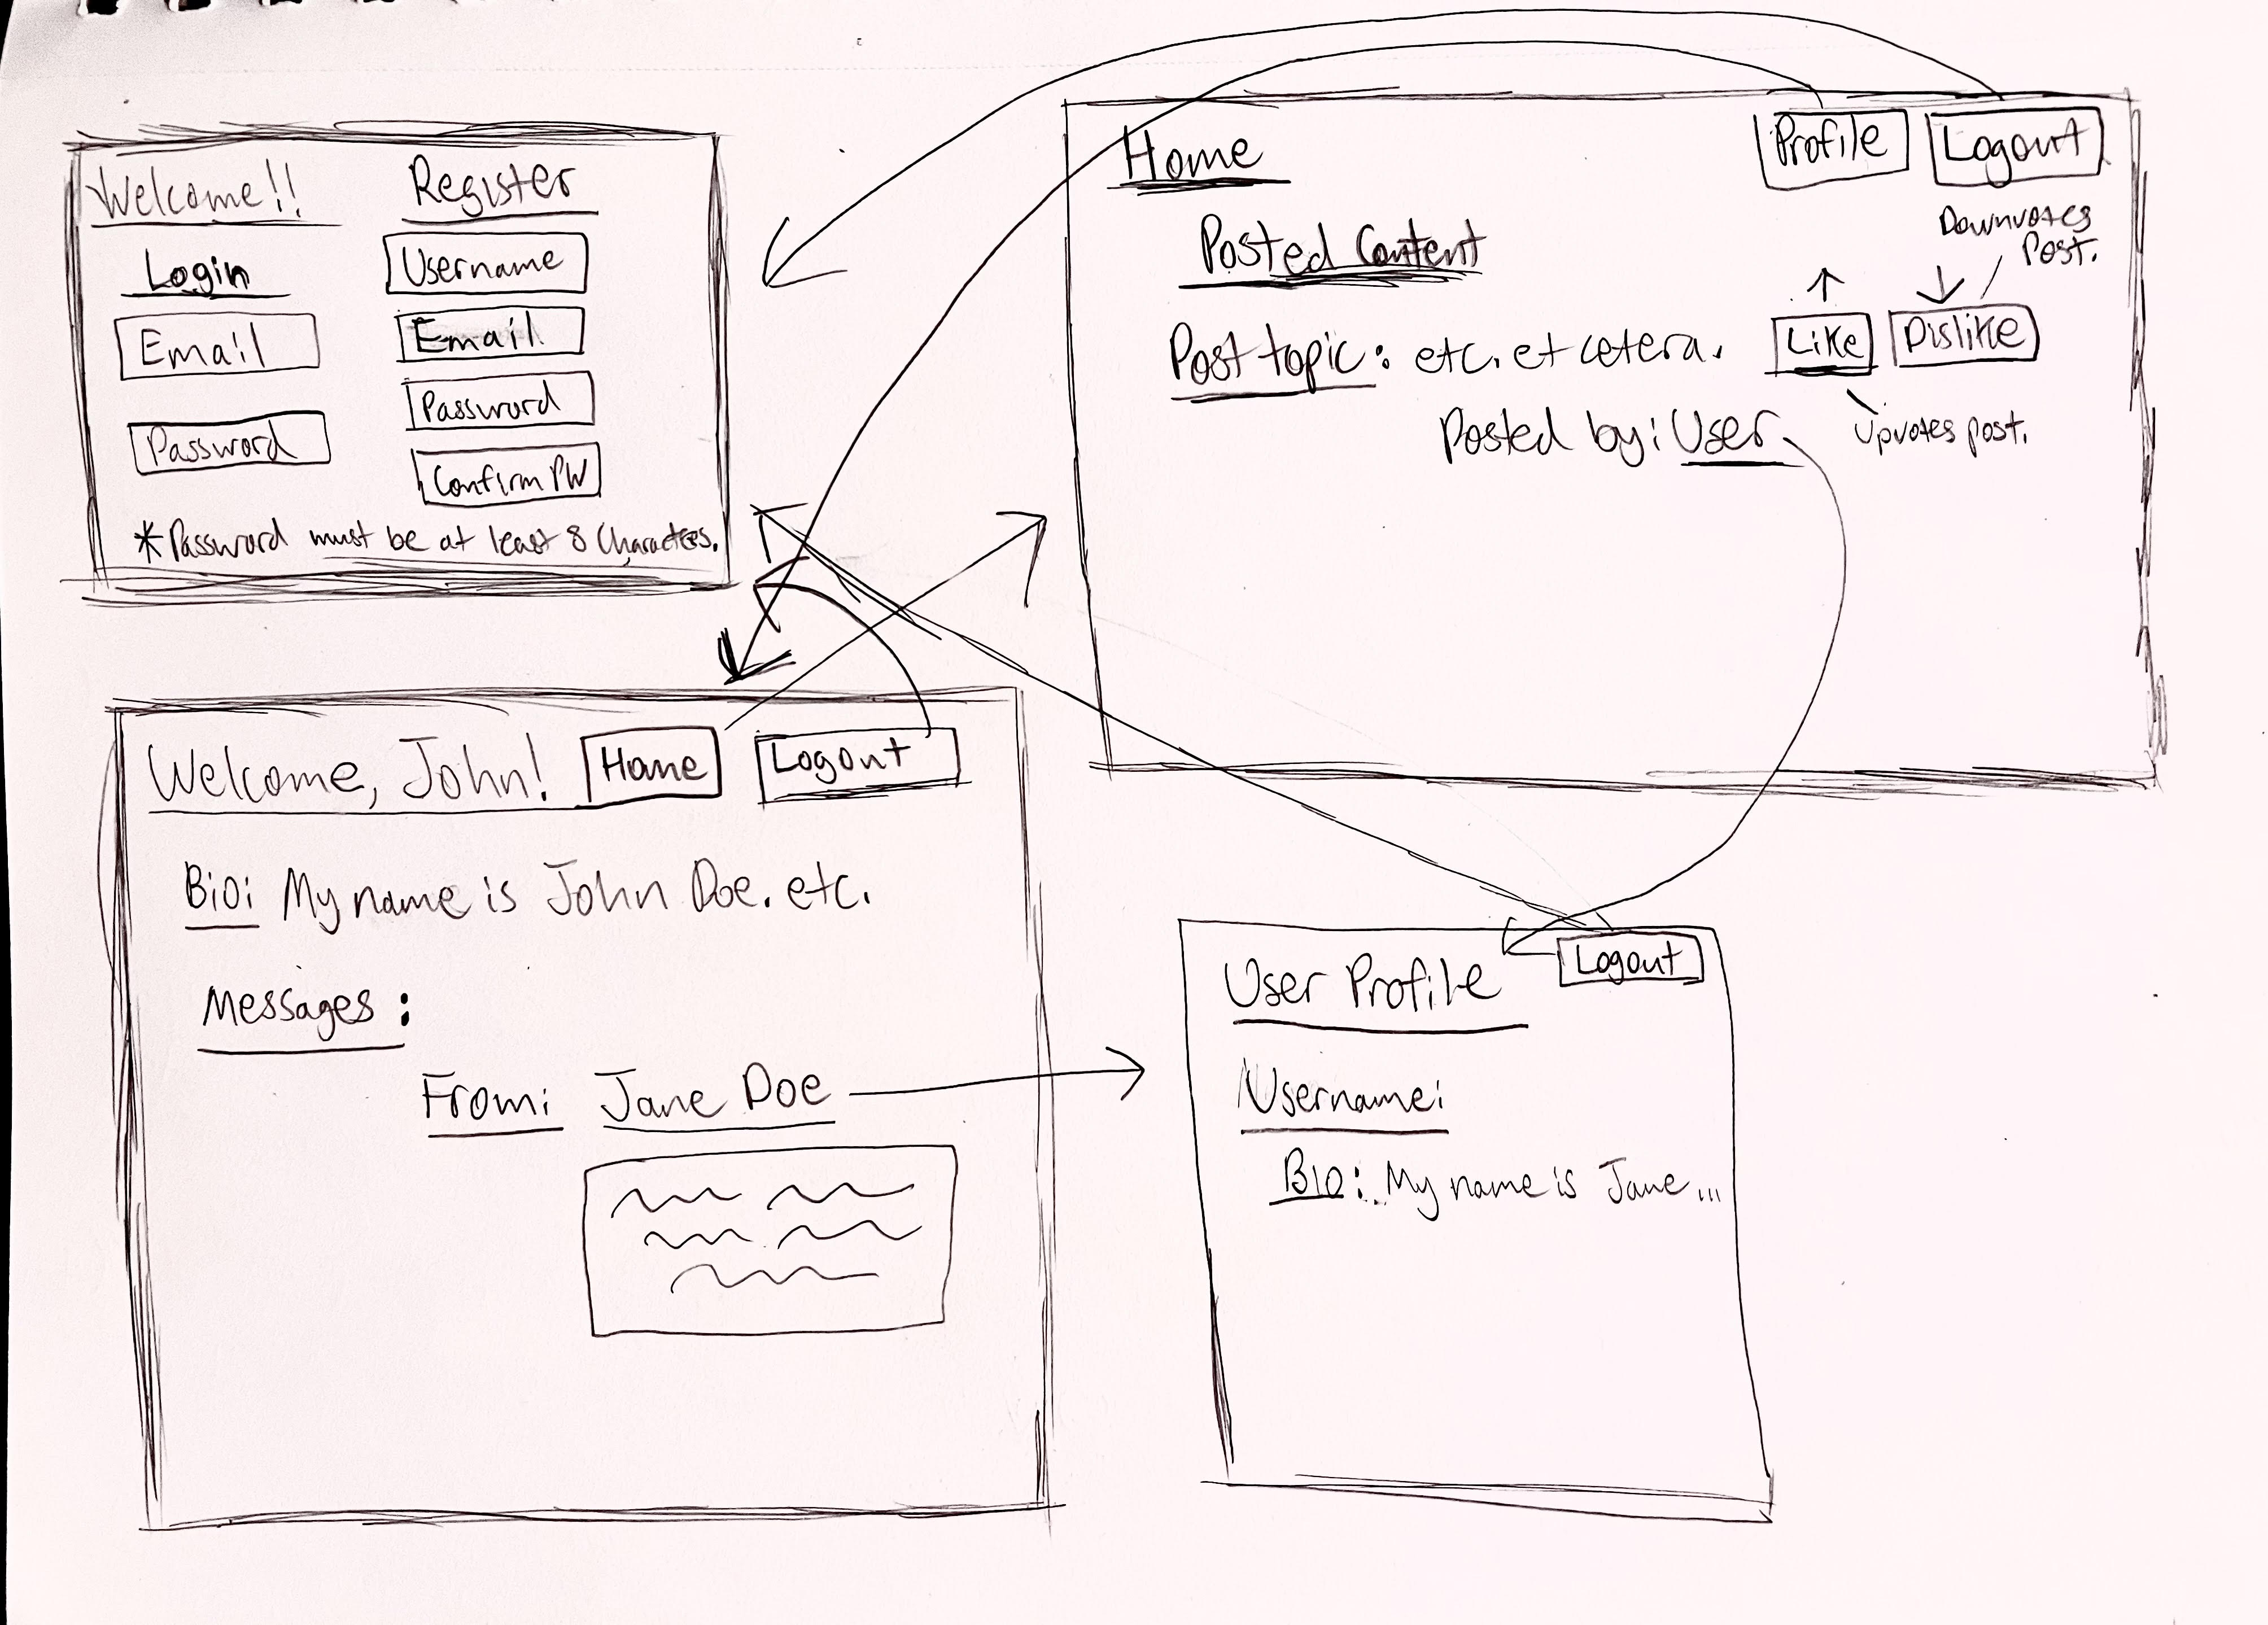 Welcome!!
Login
Email
Password
Register
Username
Email
Password
Confirm PW
*Password must be at least 8 Characters.
Home
Profile
Logout
Posted Content
Downvotes
Post.
↑ ↓
Post topic: etc. et cetera.
Like
Dislike
Posted by: User
Upvotes post.
Welcome, John!
Home
Logout
Bio: My name is John Doe. etc.
Messages:
From: Jane Doe
User Profile
Logout
Username:
Bio: My name is Jane...